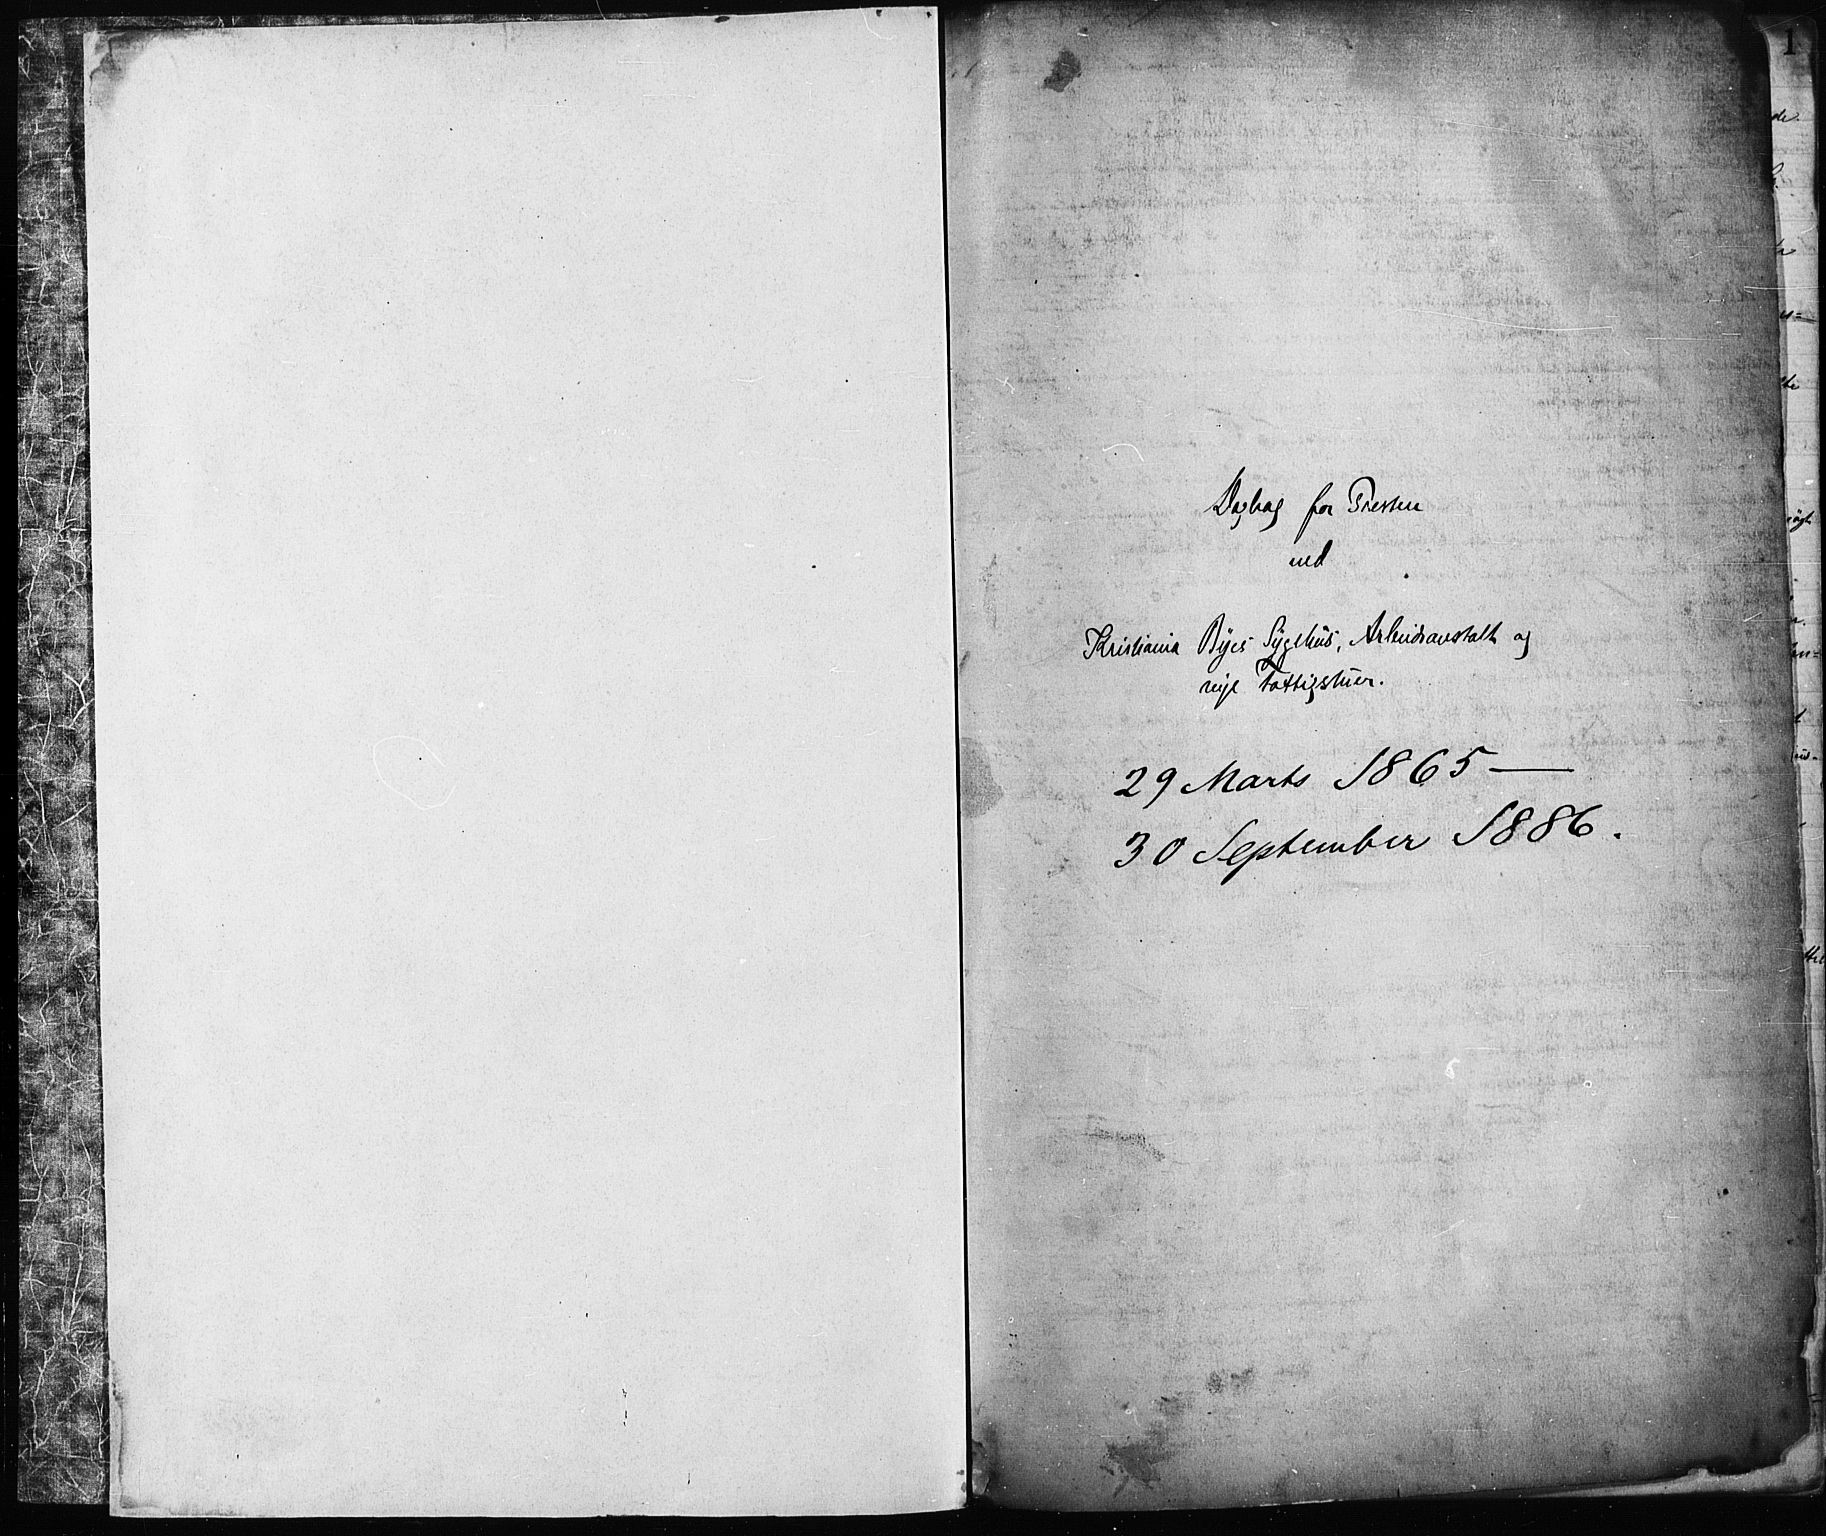 Dagbog for Presten
ved
Kristiania Byes Sygehus, Arbeidsanstalt og
nye Fattigstuer.
29 Marts 1865 —
30 September 1886.
1